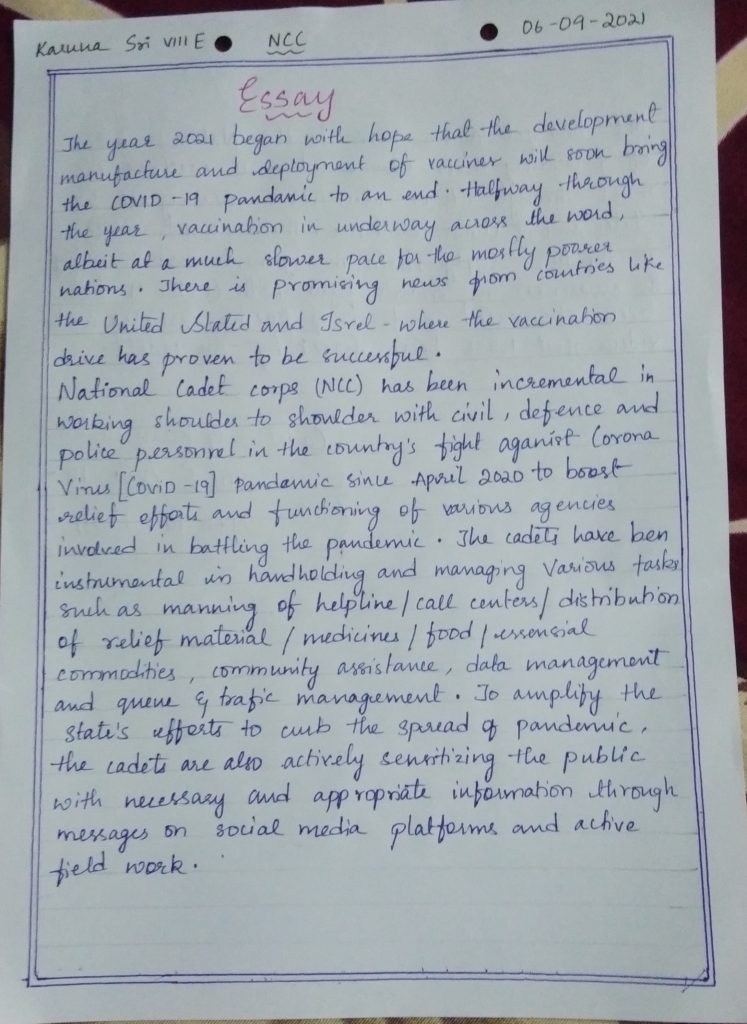 Karuna Sri VIII E NCC 06-09-2021
Essay
The year 2021 began with hope that the development
manufacture and deployment of vaccines will soon bring
the COVID-19 pandamic to an end. Halfway through
the year, vaccination in underway across the word,
albeit at a much slower pace for the mostly poorer
nations. There is promising news from countries like
the United Stated and Isrel - where the vaccination
drive has proven to be successful.
National Cadet corps (NCC) has been incremental in
working shoulder to shoulder with civil, defence and
police personnel in the country's fight aganist Corona
Virus [COVID-19] pandamic since April 2020 to boost
relief efforts and functioning of various agencies
involved in battling the pandemic. The cadets have ben
instrumental in handholding and managing Various tasks
such as manning of helpline/call centers/distribution
of relief material / medicines / food / essencial
commodities, community assistance, data management
and queue & trafic management. To amplify the
state's efforts to curb the spread of pandemic,
the cadets are also actively sensitizing the public
with necessary and appropriate information through
messages on social media platforms and active
field work.